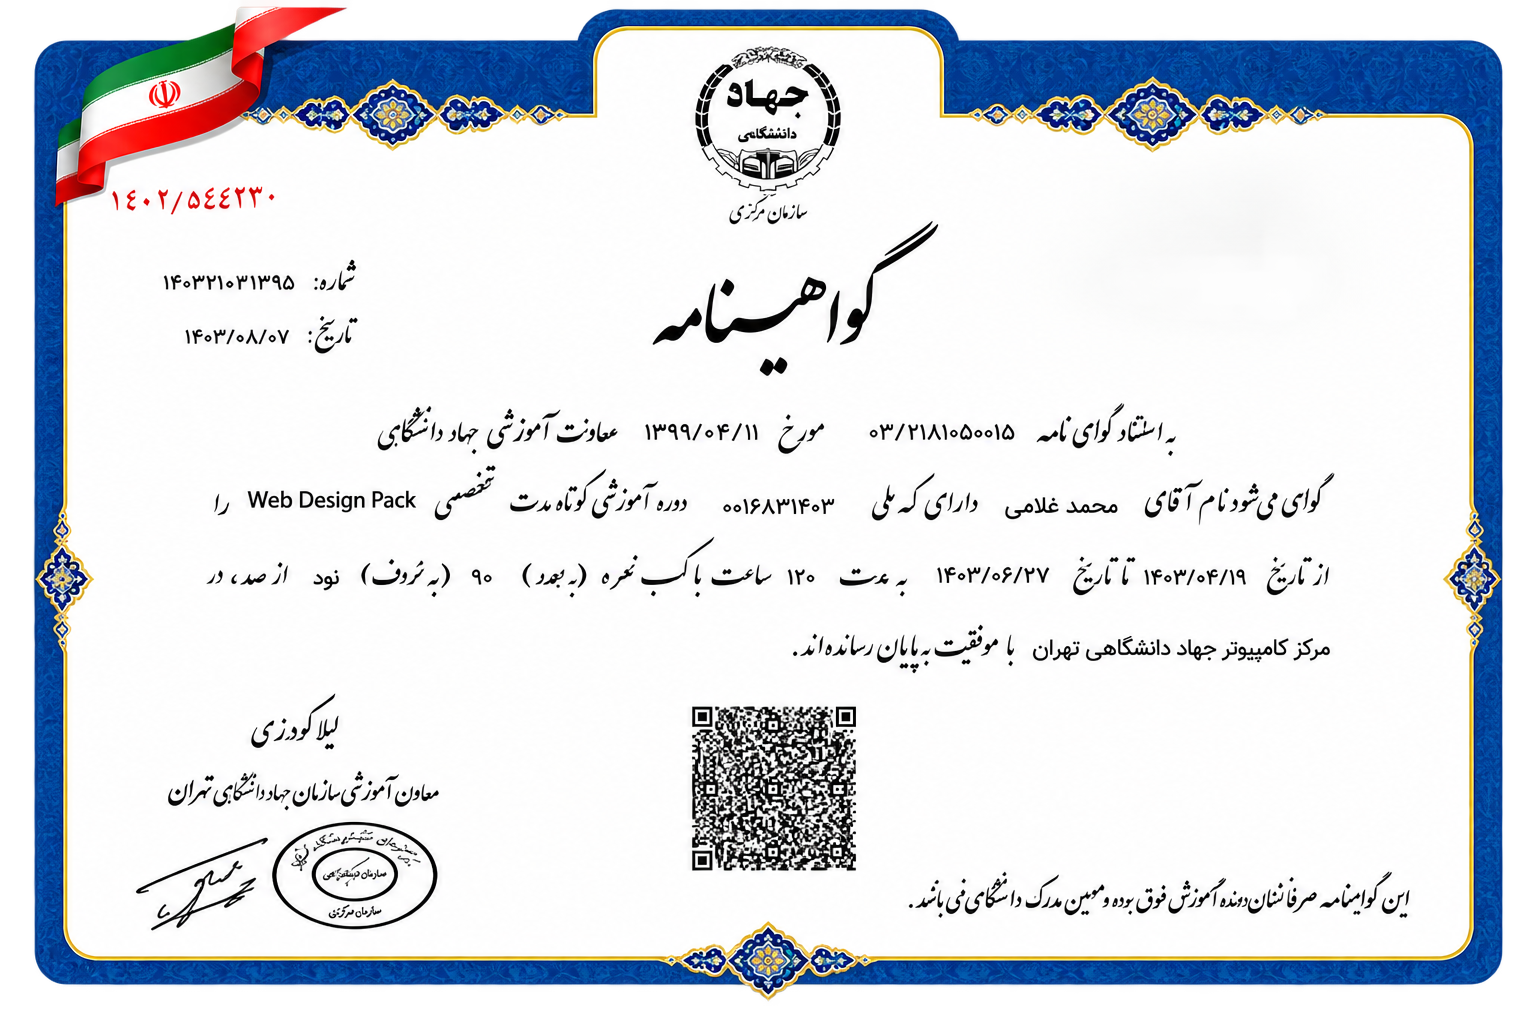 جهاد
دانشگاهی
سازمان مرکزی
۱۴۰۲/۵۴۴۲۳۰
شماره: ۱۴۰۳۲۱۰۳۱۳۹۵
تاریخ: ۱۴۰۳/۰۸/۰۷
گواهینامه
به استناد گوای نامه ۰۳/۲۱۸۱۰۵۰۰۱۵ مورخ ۱۳۹۹/۰۴/۱۱ معاونت آموزشی جهاد دانشگاهی
گوای می‌شود نام آقای محمد غلامی دارای که ملی ۰۰۱۶۸۳۱۴۰۳ دوره آموزشی کوتاه مدت تخصصی Web Design Pack را
از تاریخ ۱۴۰۳/۰۴/۱۹ تا تاریخ ۱۴۰۳/۰۶/۲۷ به مدت ۱۲۰ ساعت با کسب نمره (به عدد) ۹۰ (به حروف) نود از صد، در
مرکز کامپیوتر جهاد دانشگاهی تهران با موفقیت به پایان رسانده اند.
لیلا گودرزی
معاون آموزشی سازمان جهاد دانشگاهی تهران
سازمان مرکزی
این گواهینامه صرفا نشان دهنده آموزش فوق بوده و مبین مدرک دانشگاهی فنی باشد.